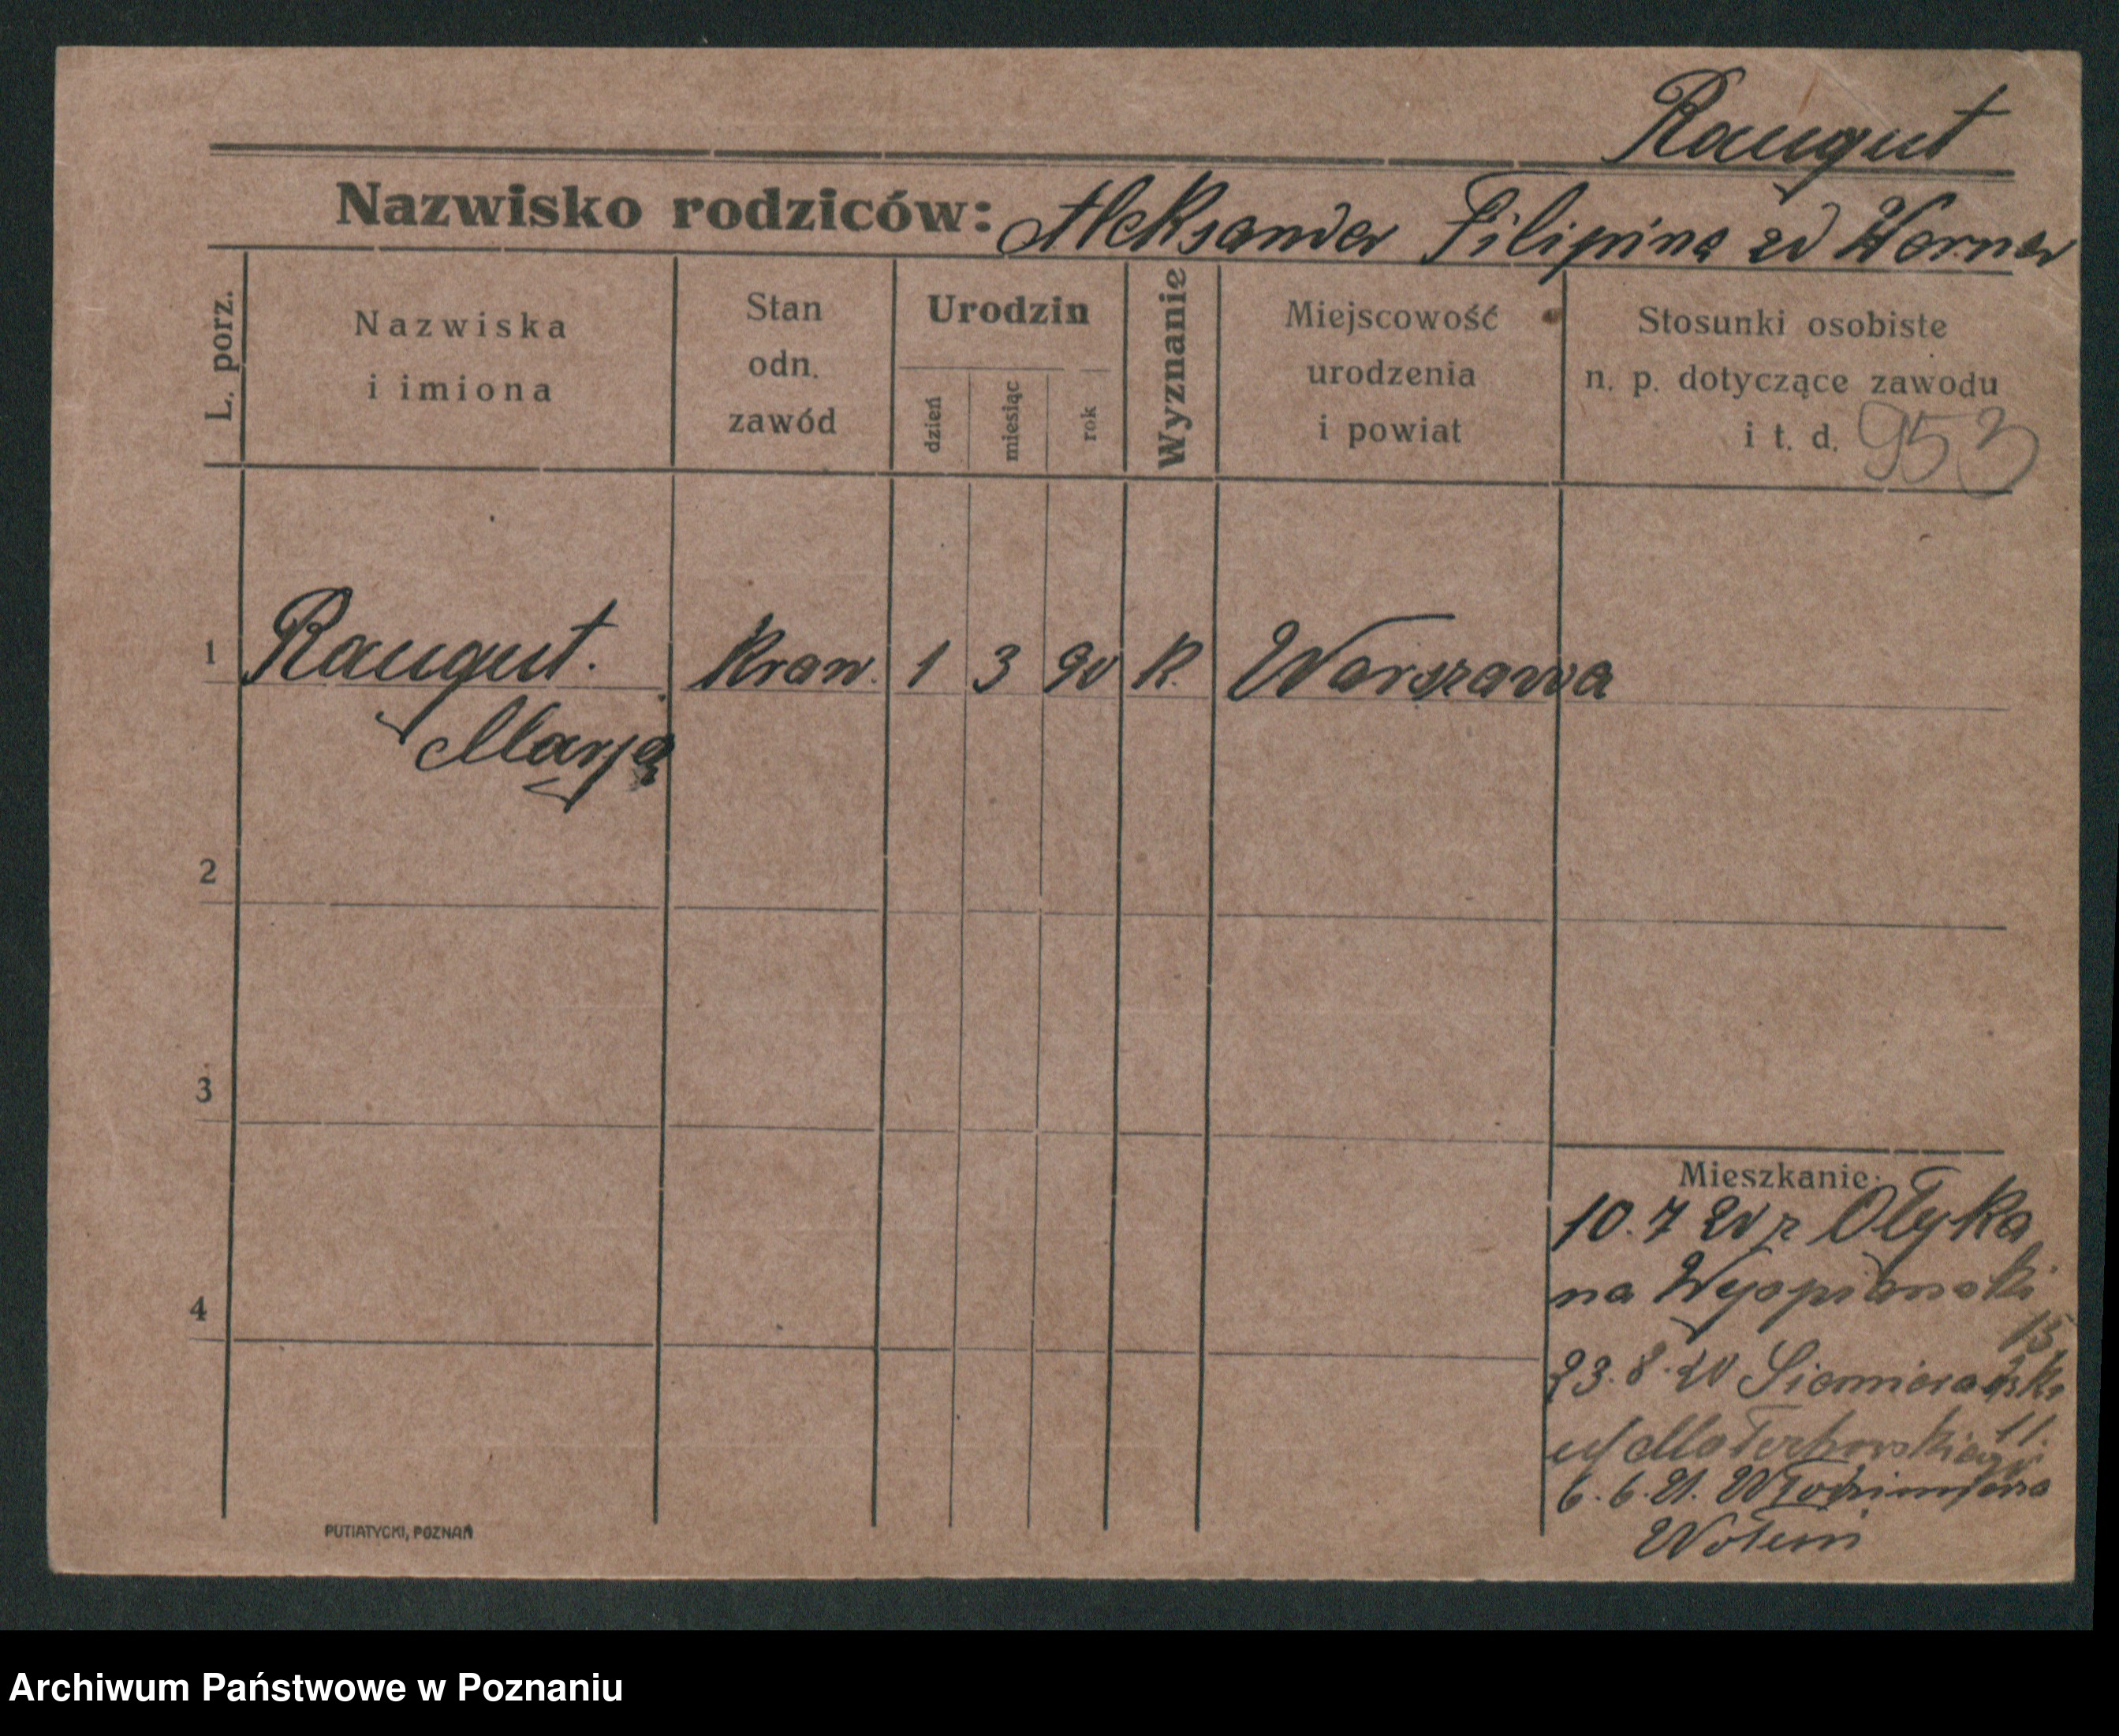 Raugut
Nazwisko rodziców: Aleksander Filipina zd Werner
L. porz.
Nazwiska
i imiona
Stan
odn.
zawód
Urodzin
dzień
miesiąc
rok
Wyznanie
Miejscowość
urodzenia
i powiat
Stosunki osobiste
n. p. dotyczące zawodu
i t. d. 953
1 Raugut. Kraw. 1 3 90 K. Warszawa
Marja
2
3
4
Mieszkanie:
10.7 20 z Ołyka
na Wyspianski
15
23.8.20 Siemieradzki
11.
u/
6.6.21. Włodzimierz
Wołyń
PUTIATYCKI, POZNAŃ
Archiwum Państwowe w Poznaniu